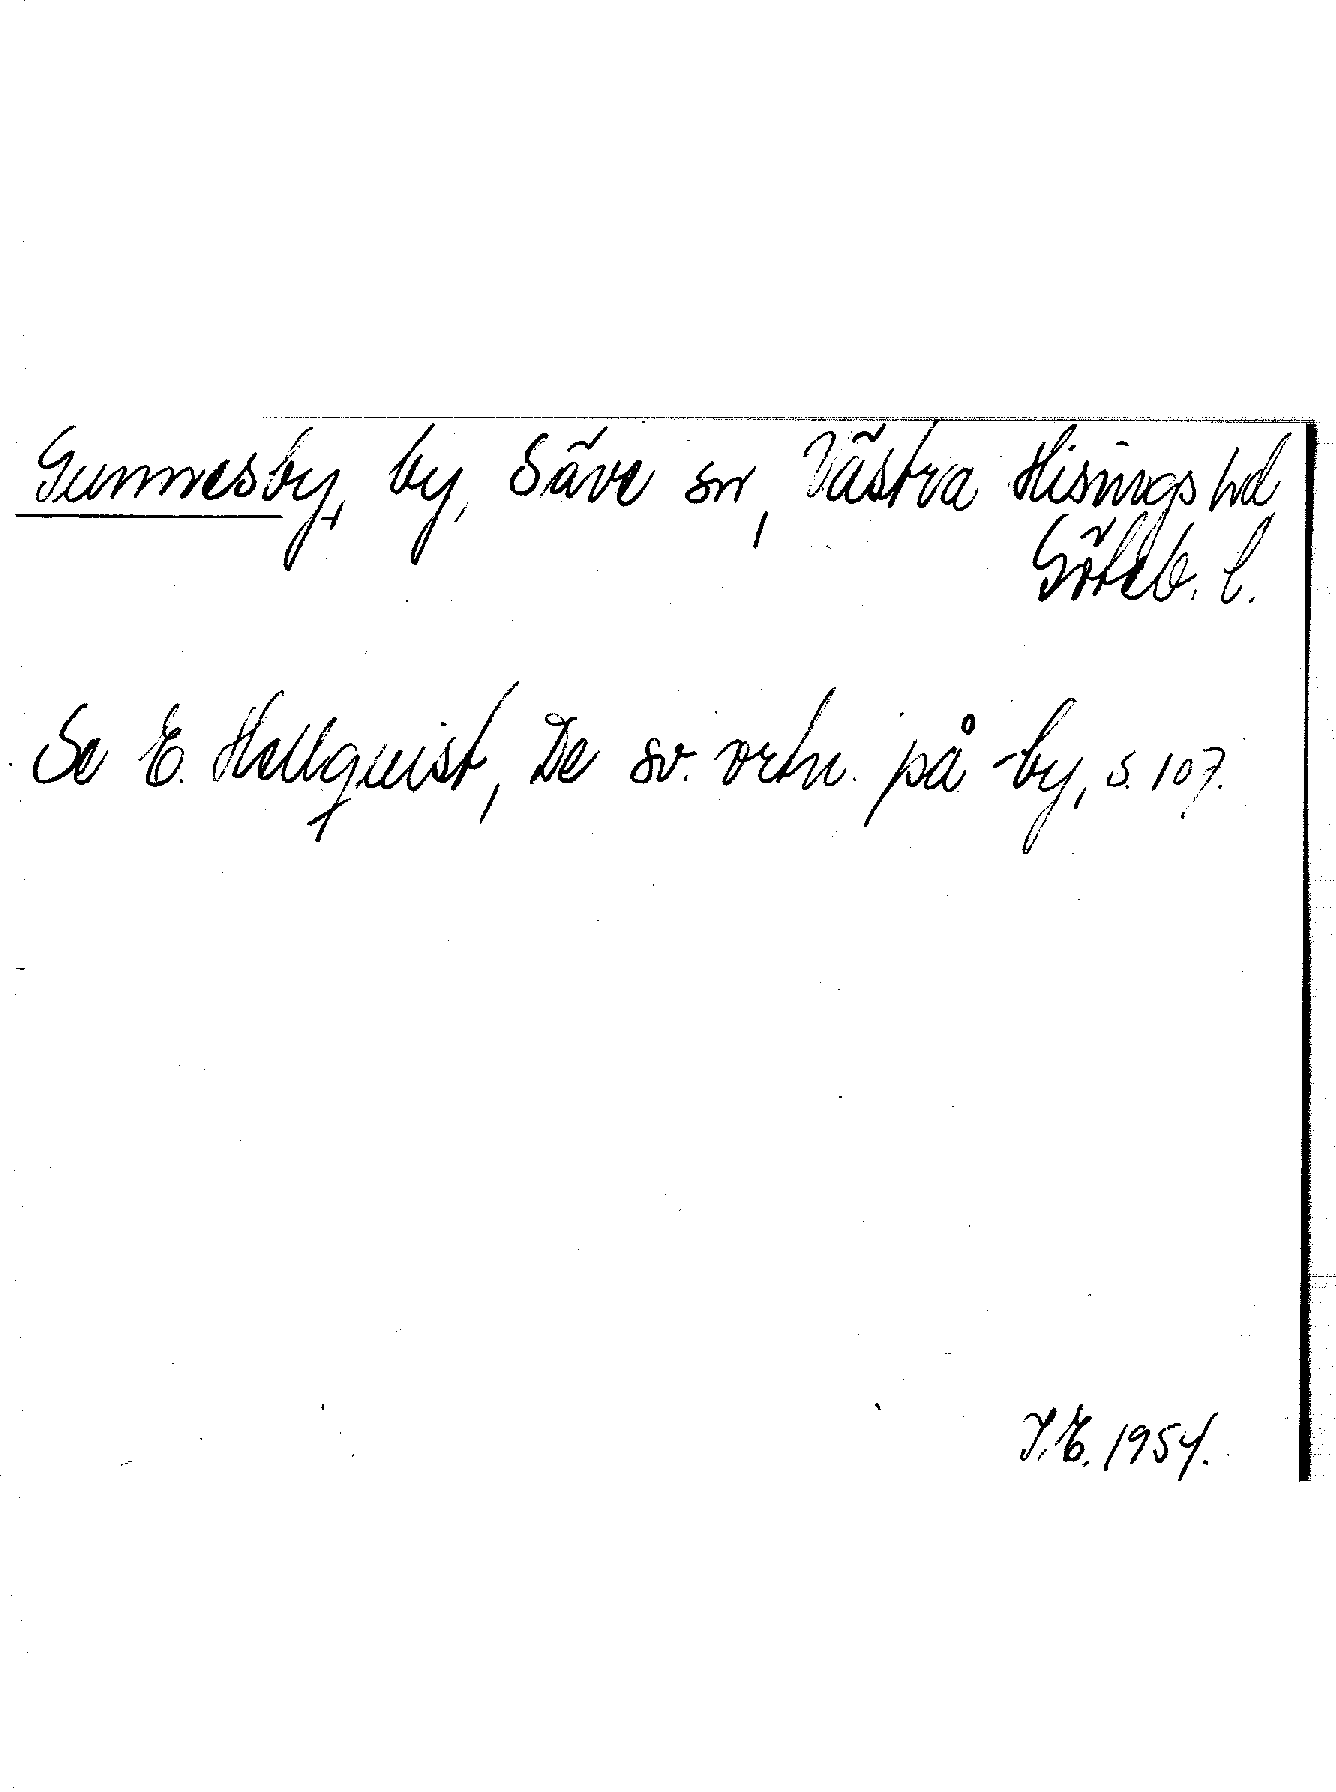 Gunnesby, by, Säve sn, Västra Hisings hd,
Göteb. l.
Se E. Hellquist, De sv. ortn. på -by, s. 107.
I.E. 1954.